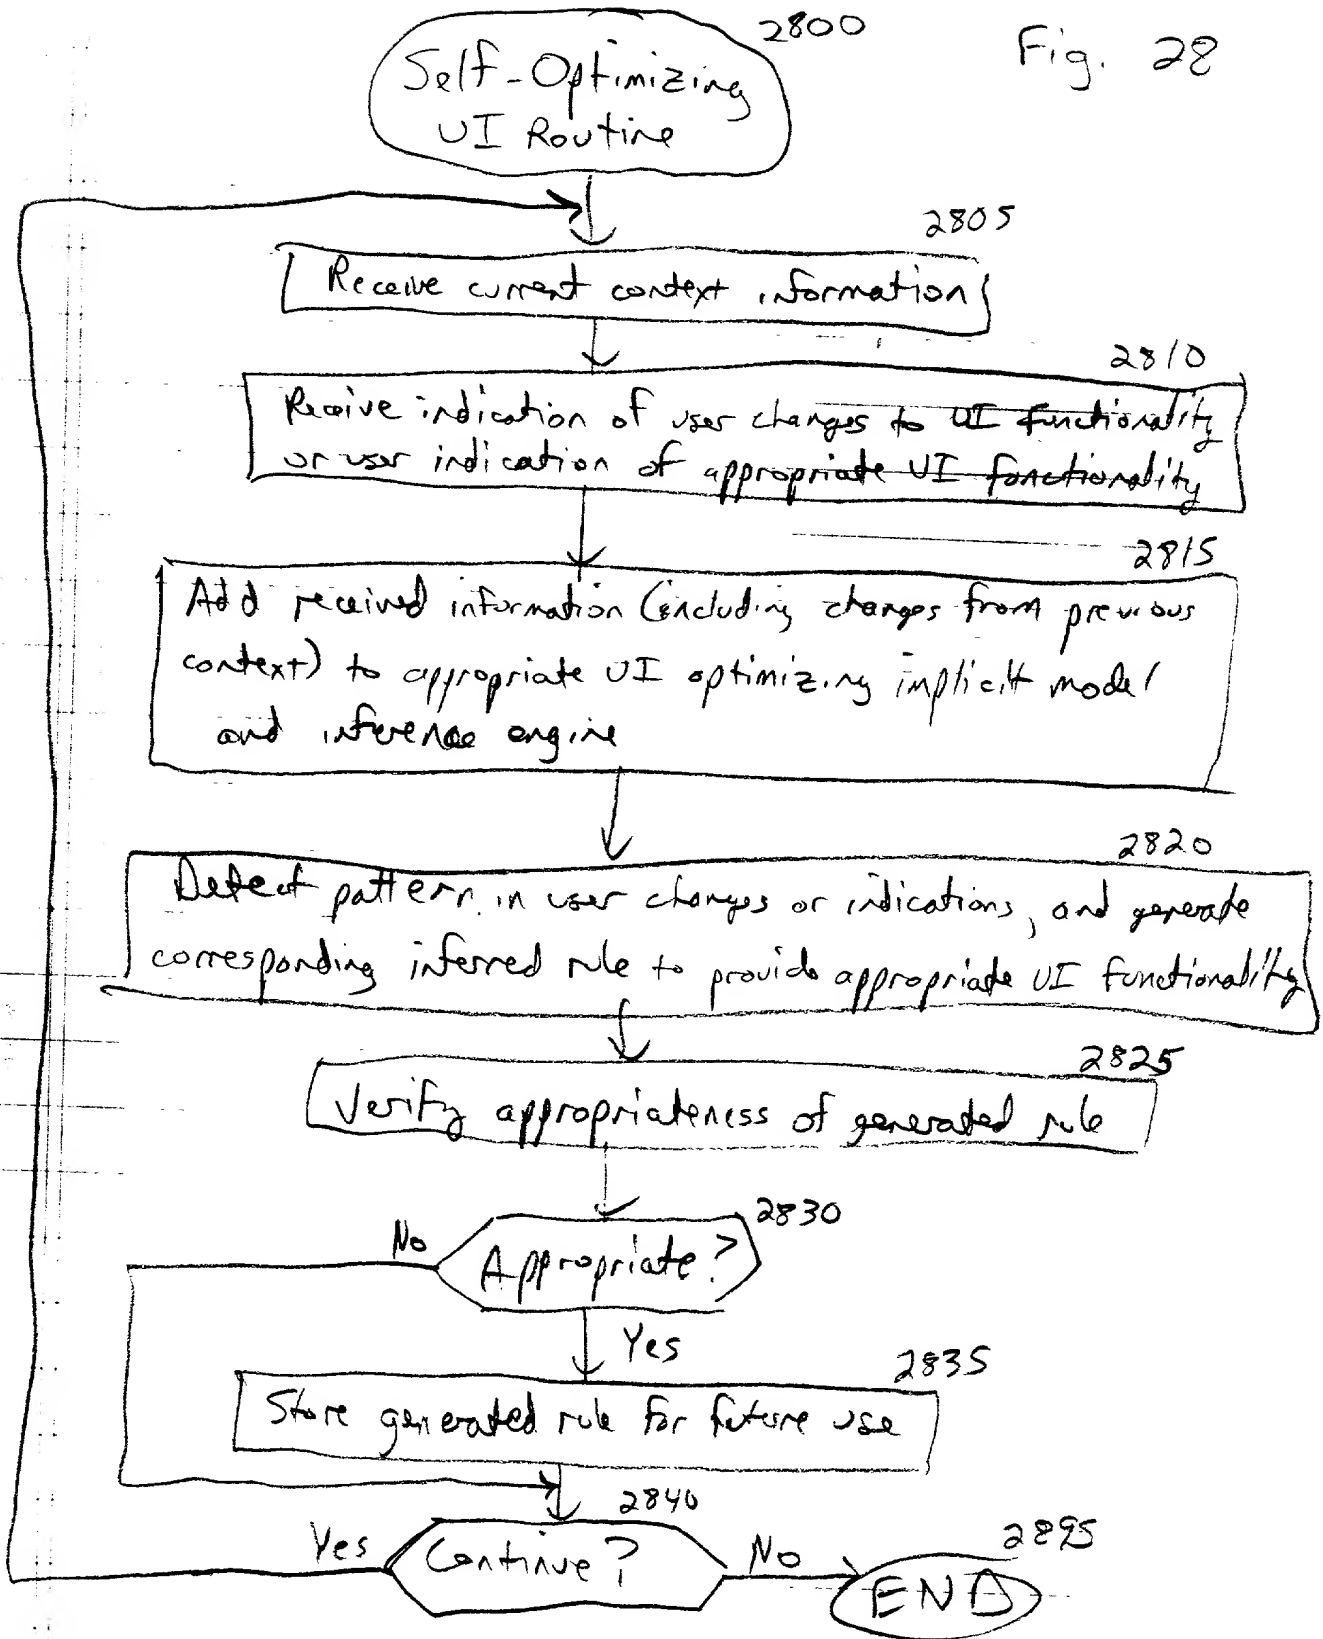 2800
Fig. 28
Self-Optimizing
UI Routine
2805
Receive current context information
2810
Receive indication of user changes to UI functionality
or user indication of appropriate UI functionality
2815
Add received information (including changes from previous
context) to appropriate UI optimizing implicit model
and inference engine
2820
Detect pattern in user changes or indications, and generate
corresponding inferred rule to provide appropriate UI functionality
2825
Verify appropriateness of generated rule
2830
No
Appropriate?
Yes
2835
Store generated rule for future use
2840
Yes
Continue?
No
2895
END